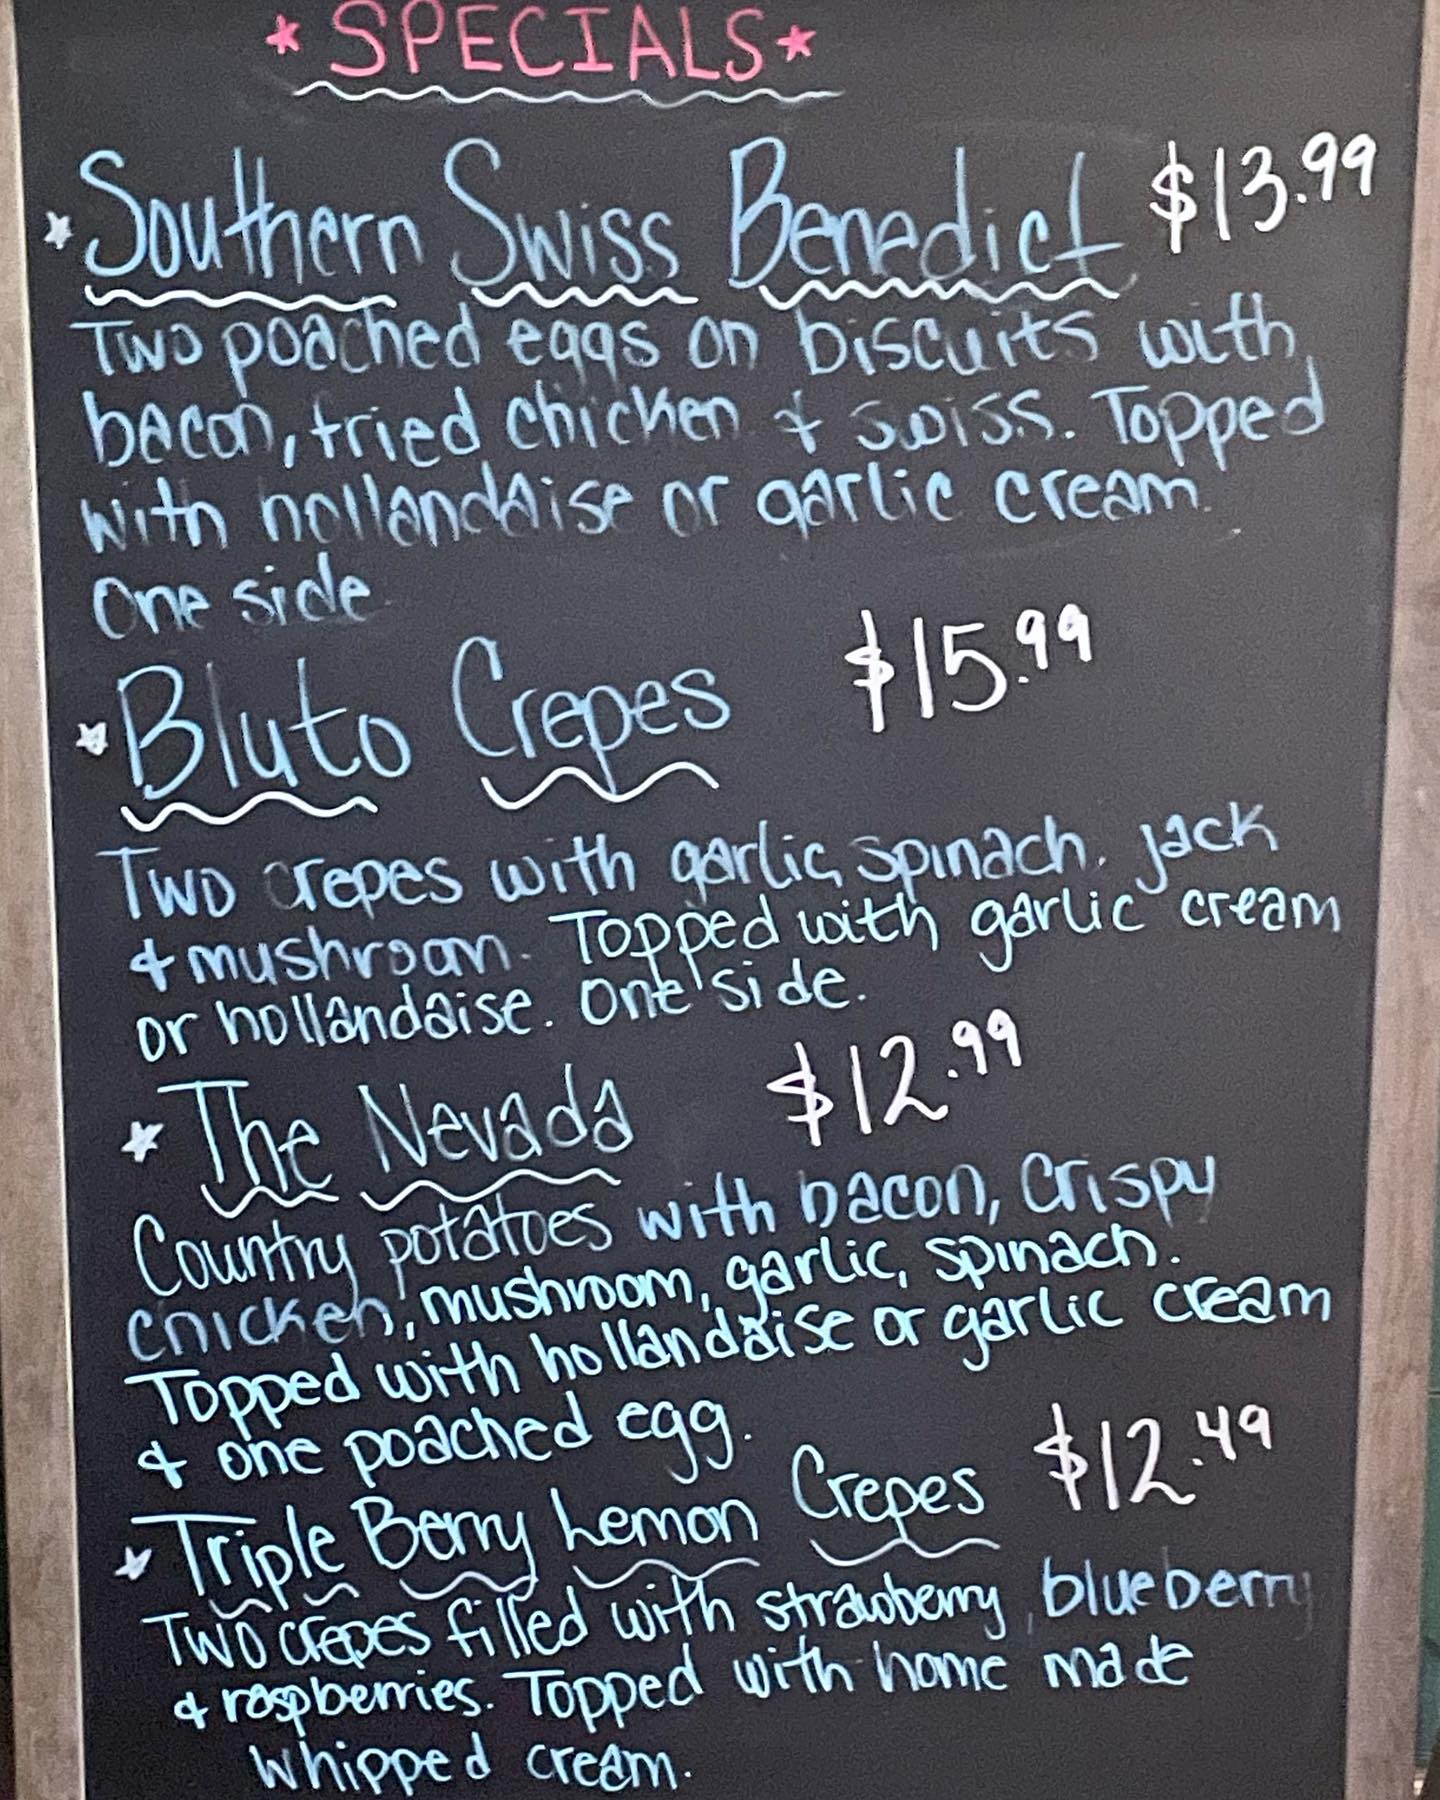 * SPECIALS *
* Southern Swiss Benedict $13.99
Two poached eggs on biscuits with
bacon, fried chicken & swiss. Topped
with hollandaise or garlic cream.
One side
* Bluto Crepes $15.99
Two crepes with garlic, spinach, jack
& mushroom. Topped with garlic cream
or hollandaise. One side.
* The Nevada $12.99
Country potatoes with bacon, crispy
chicken, mushroom, garlic, spinach.
Topped with hollandaise or garlic cream
& one poached egg.
* Triple Berry Lemon Crepes $12.49
Two crepes filled with strawberry, blueberry
& raspberries. Topped with home made
whipped cream.